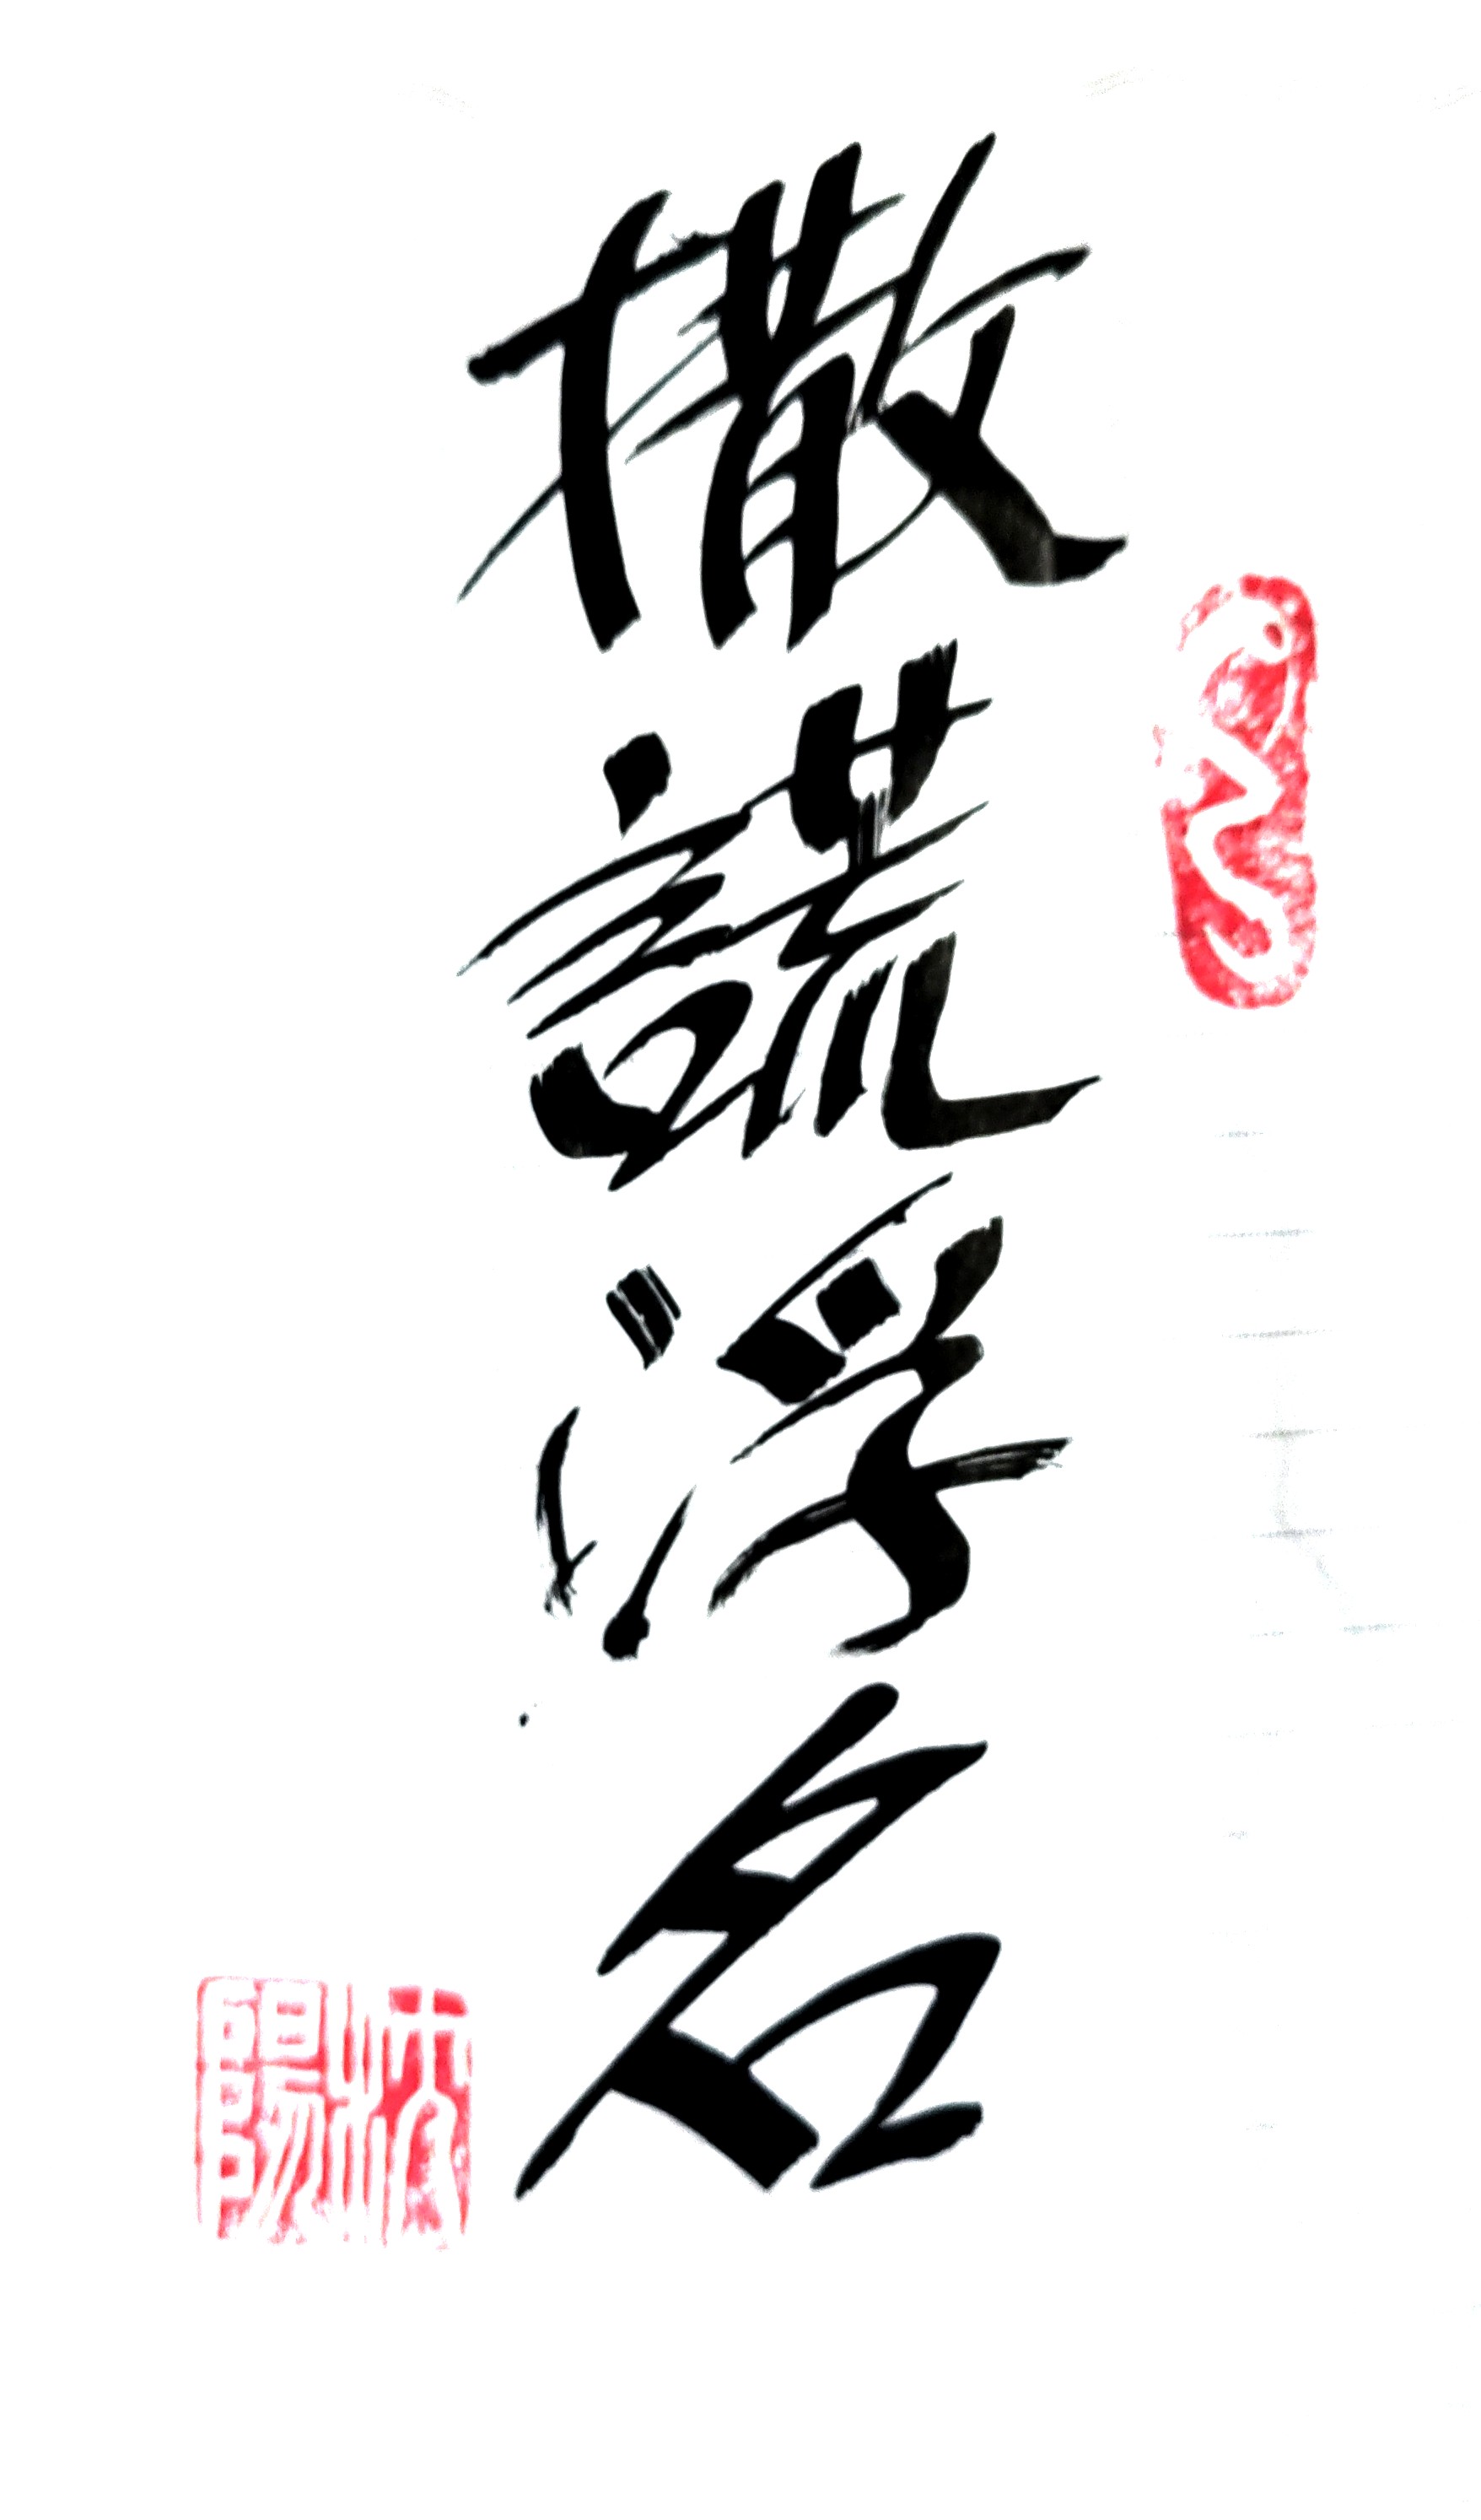 撒謊浮名